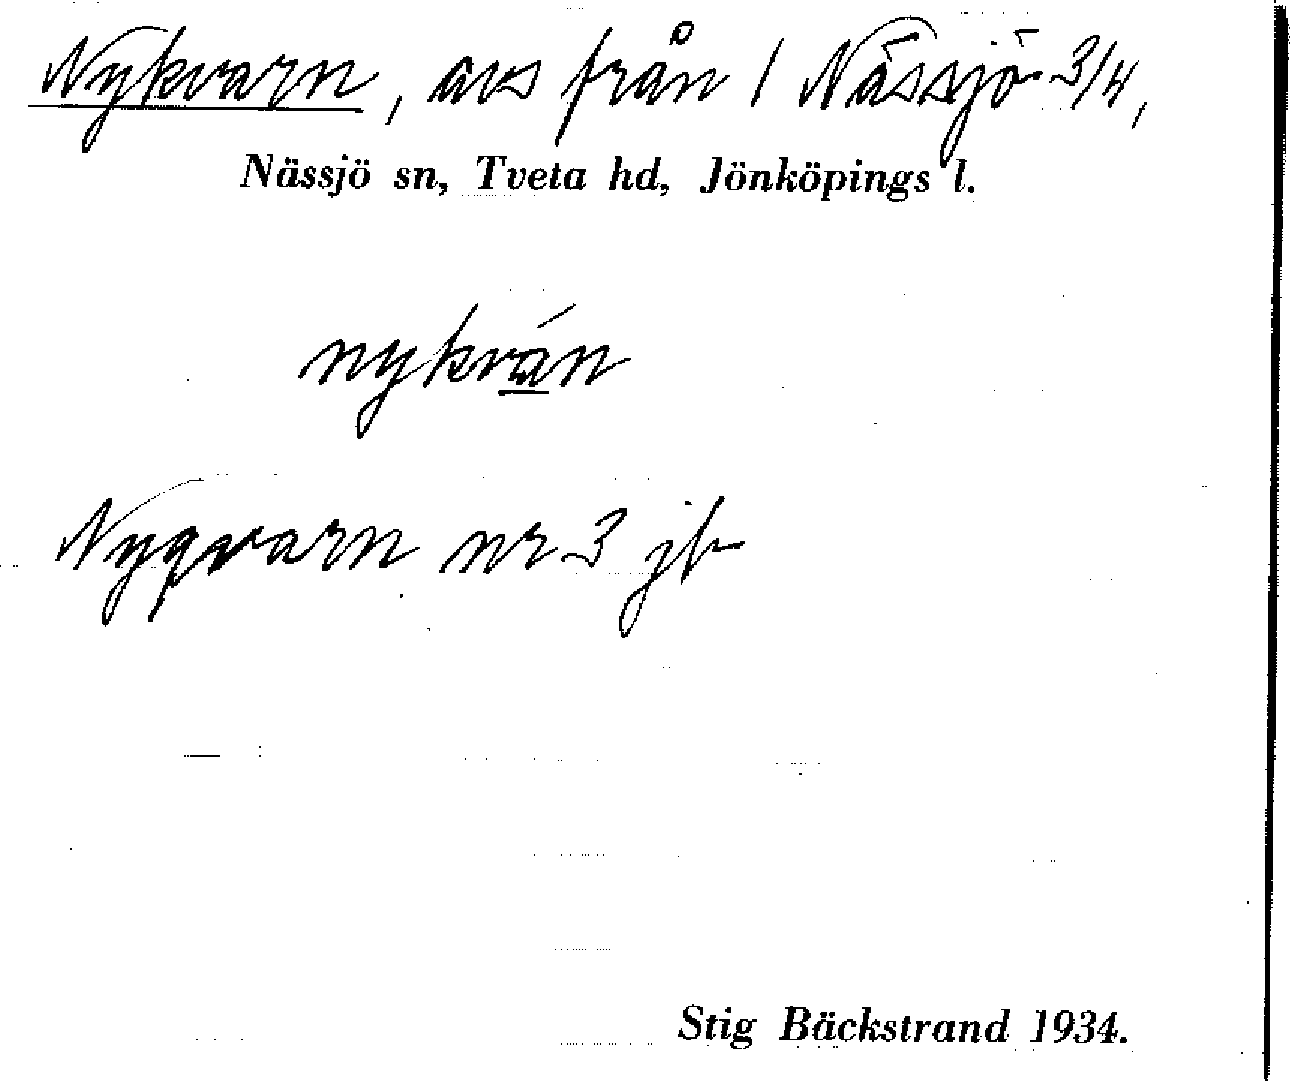 Nykvarn, avs från 1 Nässjö 3/4,
Nässjö sn, Tveta hd, Jönköpings l.
nykván
Nyqvarn nr 3 jb
Stig Bäckstrand 1934.